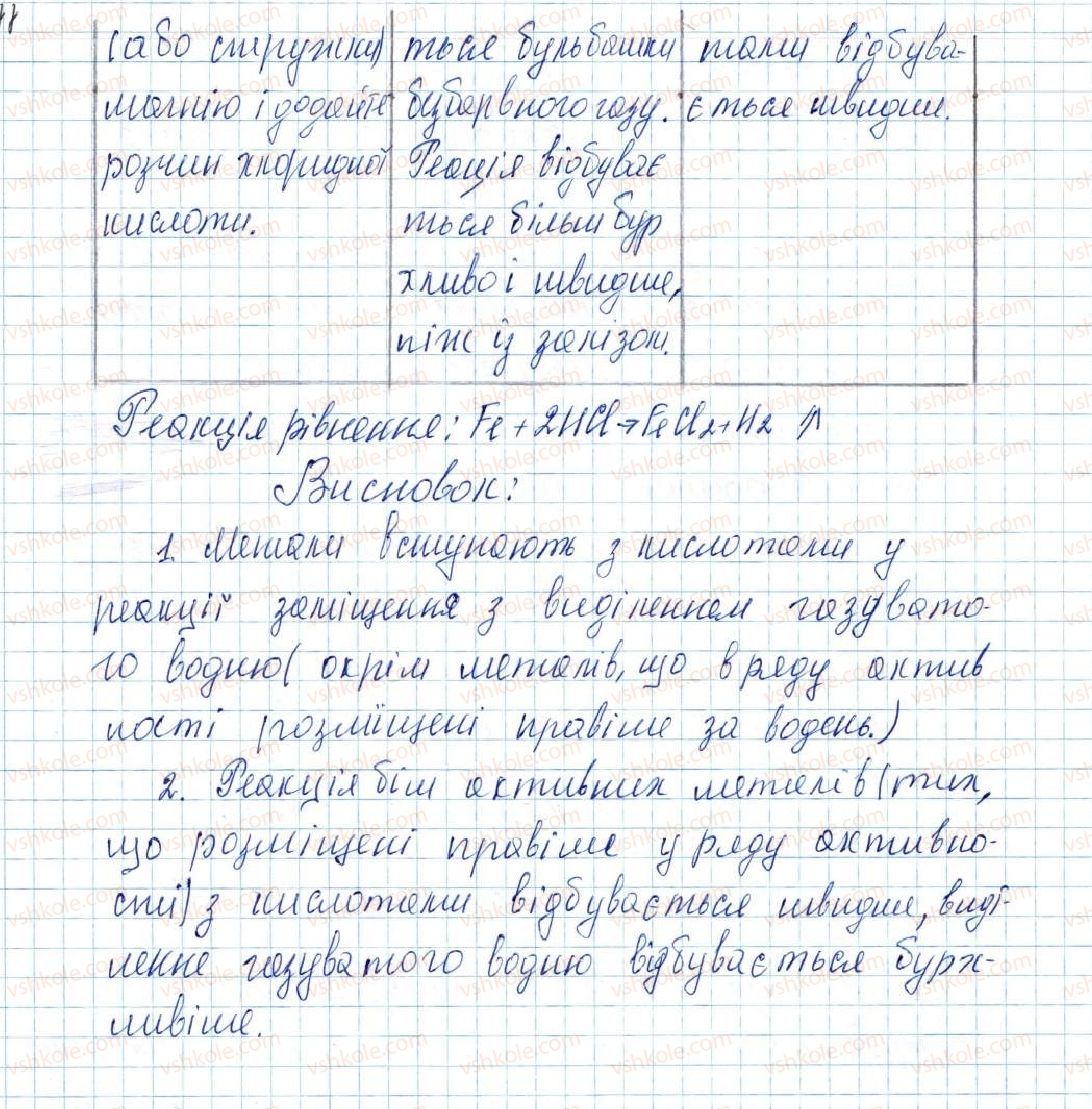 (або стружки)
магнію і додайте
розчин хлоридної
кислоти.
ться бульбашки
безбарвного газу.
Реація відбуває
ться більш бур
хливо і швидше,
ніж із залізом.
тами відбува-
ється швидше.
Реакція рівнення: Fe + 2HCl → FeCl2 + H2 ↑
Висновок:
1. Метали вступають з кислотами у
реакції заміщення з виділенням газувато-
го водню ( окрім металів, що в ряду актив
ності розміщені правіше за водень.)
2. Реакція біл активних металів (тих,
що розміщені правіше у ряду активно-
сті) з кислотами відбувається швидше, виді-
лення газуватого водню відбувається бурх-
ливіше.
vshkole.com